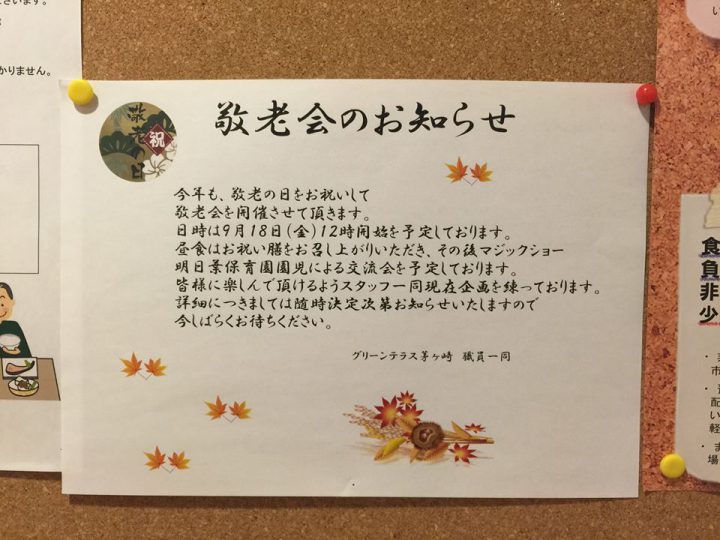 ざいます。
かりません。
敬老の日
祝
敬老会のお知らせ
今年も、敬老の日をお祝いして
敬老会を開催させて頂きます。
日時は9月18日(金)12時開始を予定しております。
昼食はお祝い膳をお召し上がりいただき、その後マジックショー
明日葉保育園園児による交流会を予定しております。
皆様に楽しんで頂けるようスタッフ一同現在企画を練っております。
詳細につきましては随時決定次第お知らせいたしますので
今しばらくお待ちください。
グリーンテラス茅ヶ崎 職員一同
食
負
非
少
市
配
い
軽
場